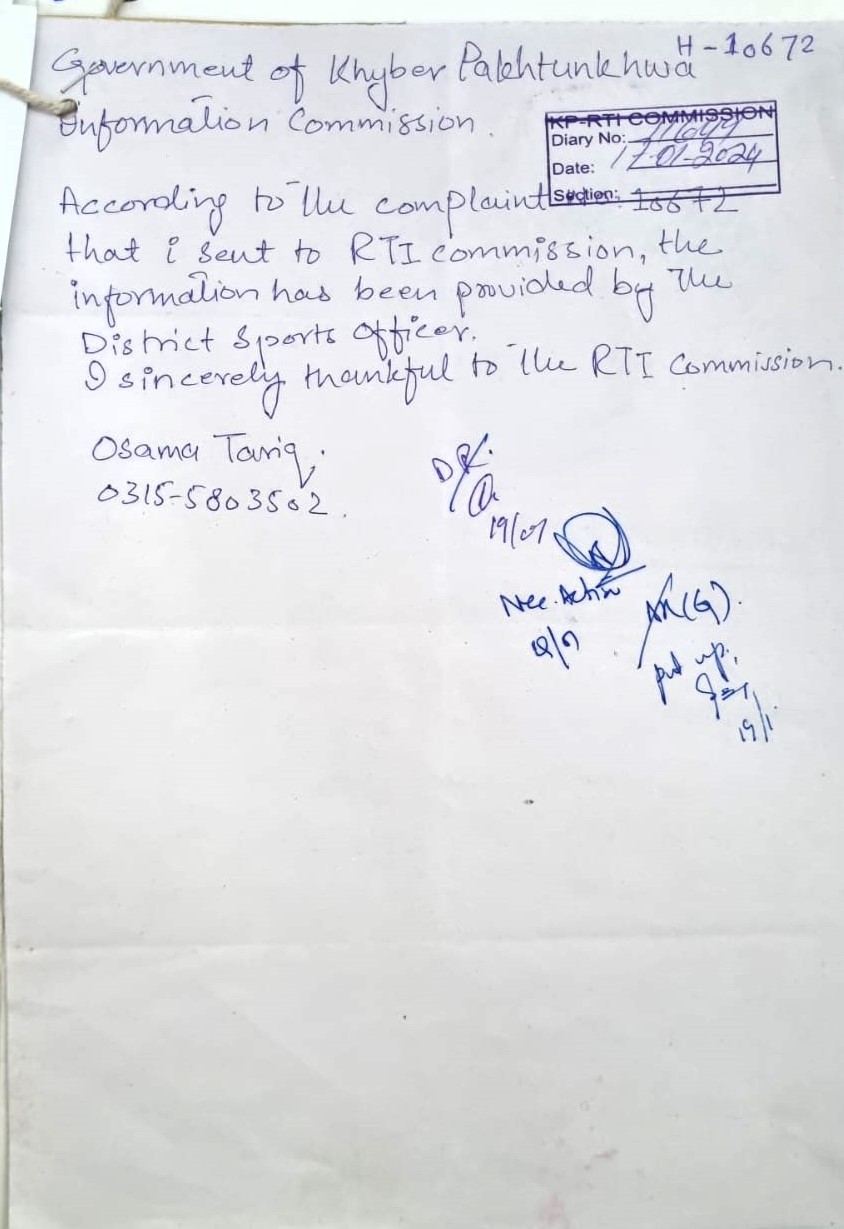 H-10672
Government of Khyber Pakhtunkhwa
Information Commission.
KP-RTI COMMISSION
Diary No:
Date: 17-01-2024
Section:
According to the complaint 10672
that i sent to RTI commission, the
information has been provided by the
District Sports Officer.
I sincerely thankful to the RTI Commission.
Osama Tariq.
0315-5803502.
19/01
Nec. Action
AR(G).
put up.
19/1